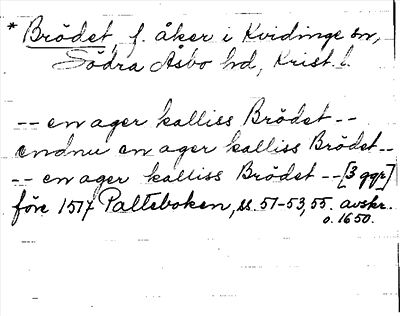 * Brödet f. åker i Kvidinge sn,
Södra Åsbo hd, Krist. l.
-- en ager kalliss Brödet --
endnu en ager kalliss Brödet --
-- en ager kalliss Brödet -- [3 ggr]
före 1517 Palteboken, ss. 51-53, 55. avskr.
o. 1650.